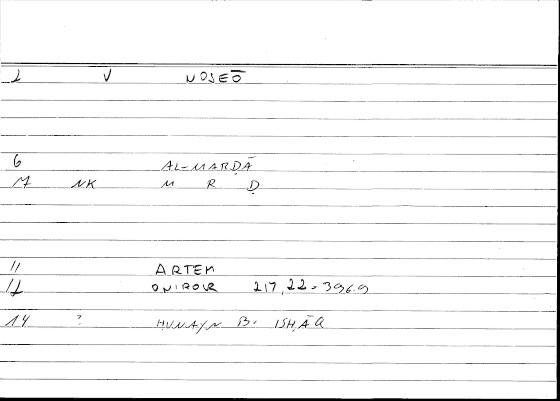 1 V NOSEŌ
6 AL-MARḌĀ
7 NK M R Ḍ
11 ARTEM
12 ONIROCR 217,22 = 396.9
14 ? ḤUNAYN B. ISḤĀQ